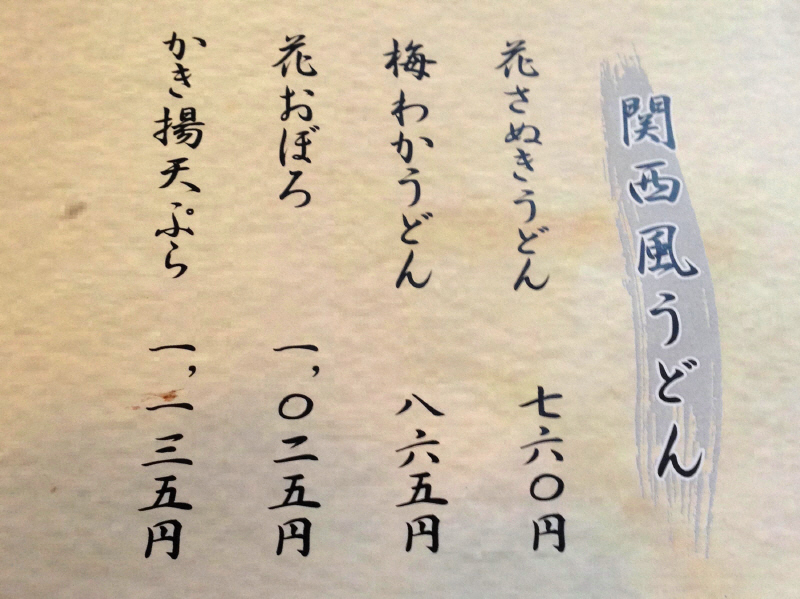 関西風うどん
花さぬきうどん 七六〇円
梅わかうどん 八六五円
花おぼろ 一,〇二五円
かき揚天ぷら 一,一三五円